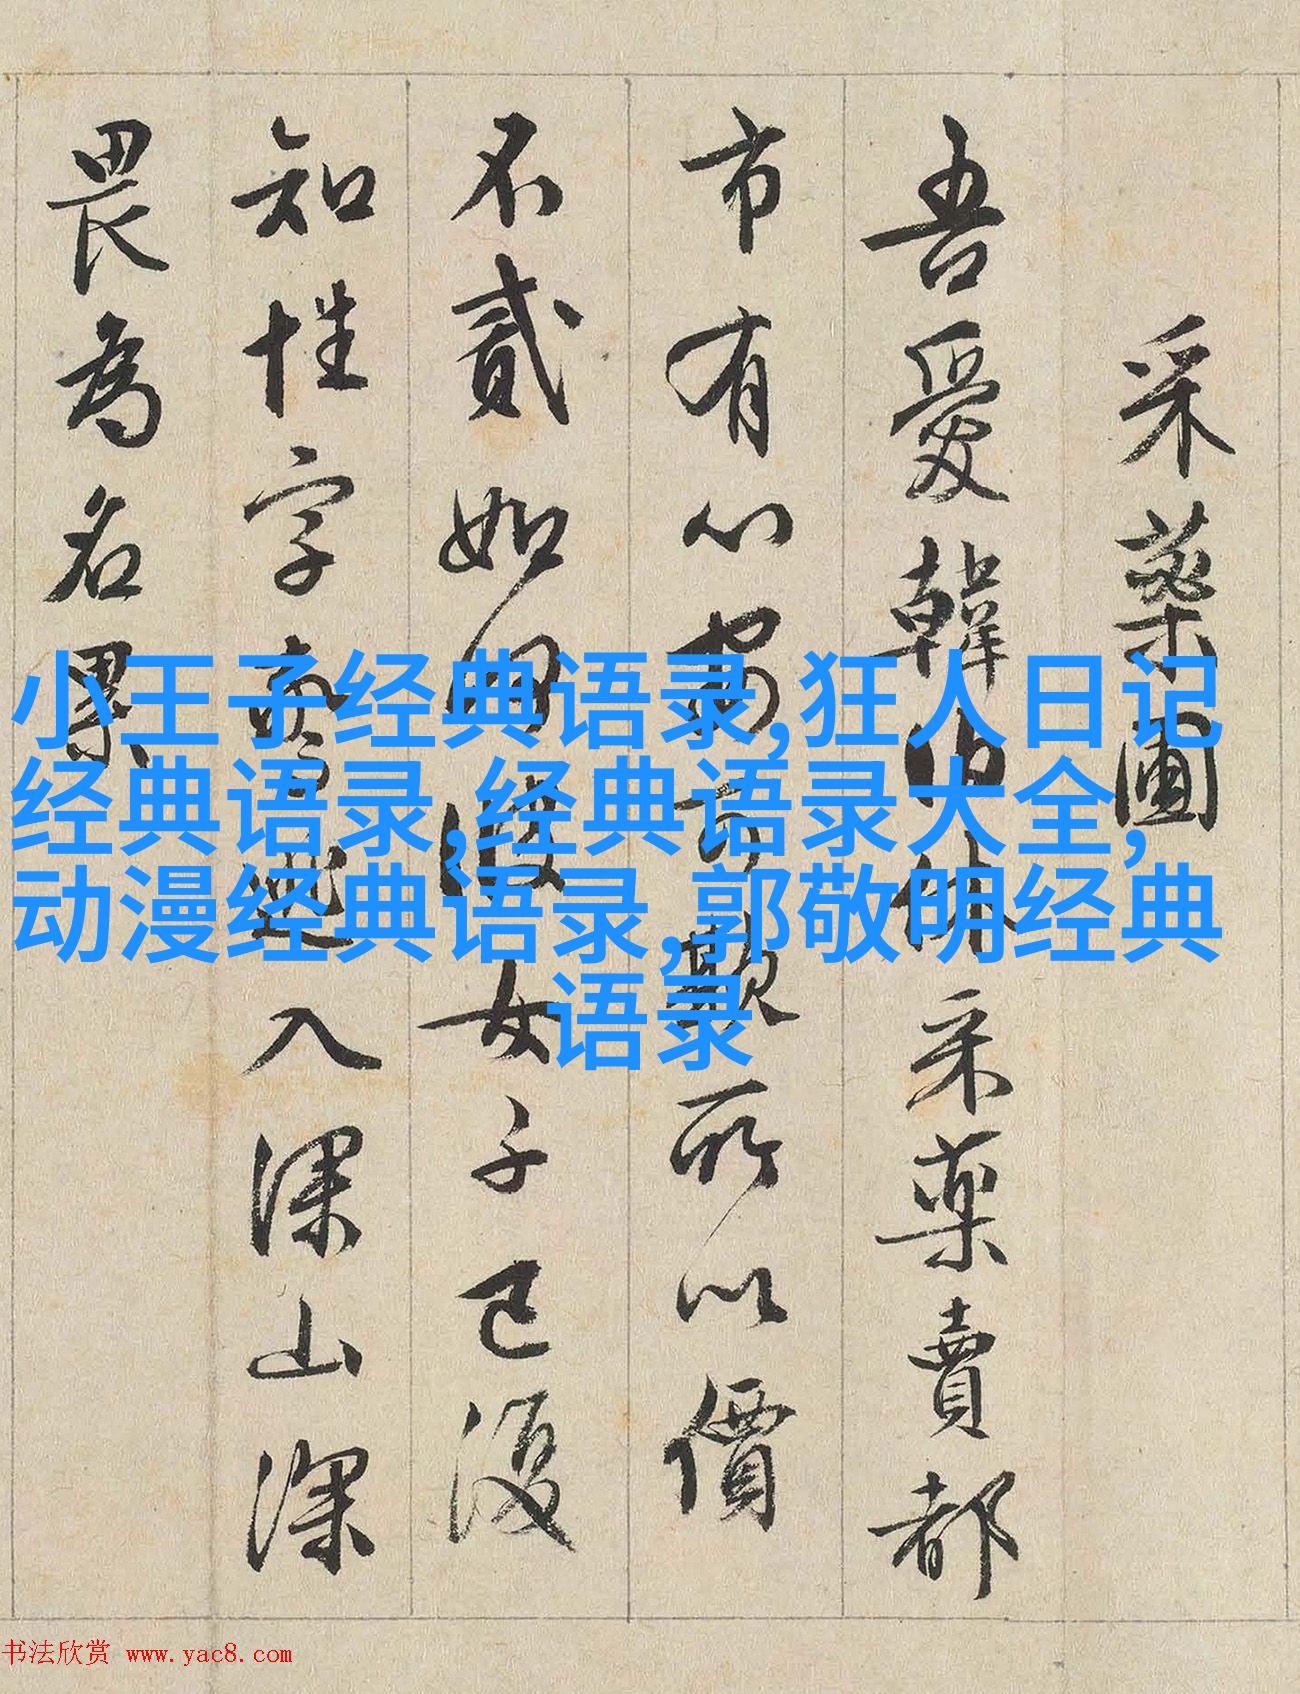 采藥圃
吾愛韓伯休采藥賣都
市有心可所以價
不貳如何彼女子已復
知性字入深山深
畏為名累
小王子经典语录,狂人日记
经典语录,经典语录大全,
动漫经典语录,郭敬明经典
语录
书法欣赏 www.yac8.com